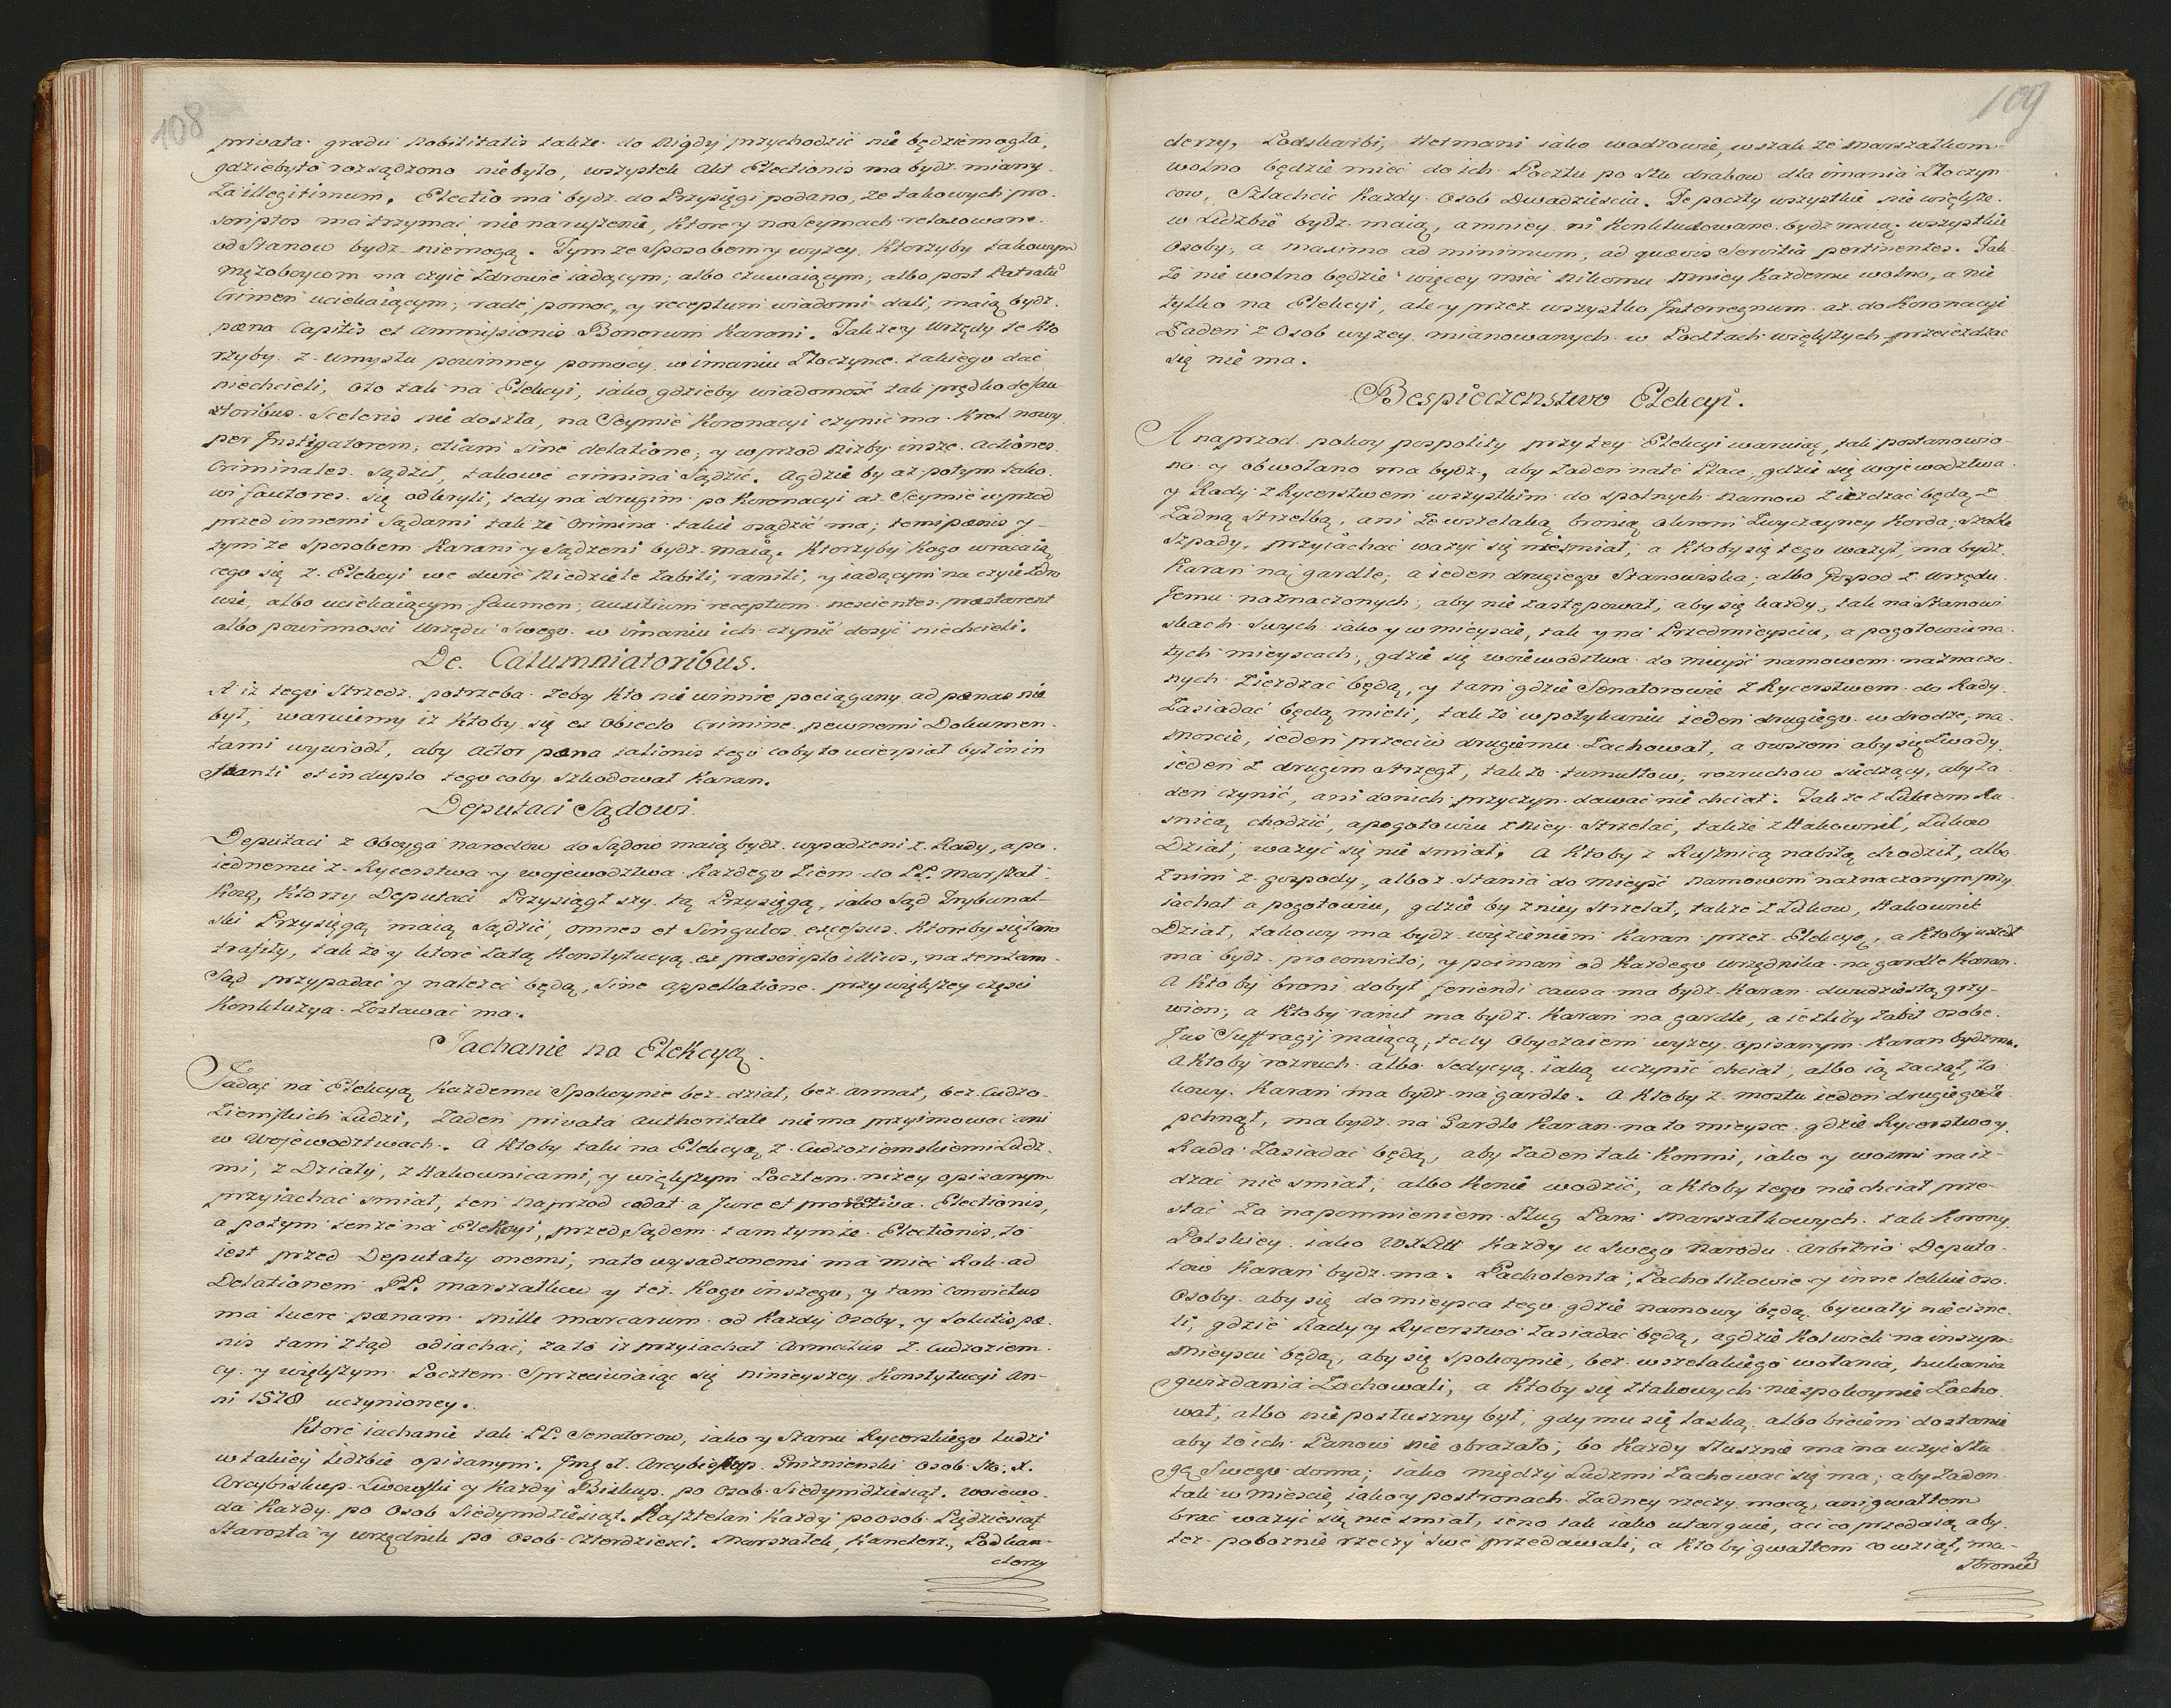 108
privata gradu Nobilitatis takze do Nigdy przychodzić nie będziemogła,
gdziebyto rozsądzono niebyło, wszystek Akt Electionis ma bydz miany
za illegitimum. Electio ma bydz do Przysięgi podano, ze takowych pro-
scriptos ma trzymać nie naruszenie, ktore y na Seymach relaxowane
od Stanow bydz niemogą. Tymze Sposobem y wyzey Ktorzyby takowym
mężoboycom na czyie Zdrowie iadącym, albo czuwaiącym, albo post Patratu
Crimen uciekaiącym, radę, pomoc, y receptum wiadomi dali, maią bydz
pæna Capitis et ammissionis Bonorum Karani. Takzey Urzędy te Kto
rzyby z umysłu powinney pomocy w imaniu Złoczynce takiego dać
niechcieli, oto tak na Elekcyi, iako gdzieby wiadomość tak prędko de fau
ctoribus Sceleris nie doszła, na Seymie Koronacyi czynić ma Krol nowy
per Instigatorem, etiam sine delatione, y w przod nizby insze actiones
Criminales sądził, takowe crimina Sądzić. A gdzie by az potym tako
wi fautores się odkryli, tedy na drugim po Koronacyi az Seymie wprzod
przed innemi Sądami takze crimina takie osądzić ma; temi pænis y
tymze sposobem Karani y Sądzeni bydz maią. Ktorzyby Kogo wracaią
cego się z Elekcyi we dwie Niedziele zabili, ranili, y iadącym na czyie zdro
wie, albo uciekaiącym faumen, auxilium receptum nescientes præstarent
albo powinnosci Urzędu Swego w imaniu ich czynić dosyć niechcieli.
De Calumniatoribus.
A iz tego Strzedz potrzeba zeby Kto nie winnie pociągany ad pænas nie
był, waruiemy iz Ktoby się ex obiecto Crimine pewnemi Dokumen-
tami wywiodł, aby Actor pæna talionis tego coby to ucierpiał był in in
stanti et in duplo tego coby Szkodował Karan.
Deputaci Sądowi.
Deputaci z Oboyga narodow do Sądow maią bydz wysadzeni z Rady, a po
iednemu z Rycerstwa y wojewodztwa Każdego Ziem do PP. Marszał-
kow, Ktorzy Deputaci Przysiągłszy tą Przysięgą, iako Sąd Trybunal-
ski Przysięgą maią Sądzić, omnes et Singulos excessus Ktoreby się tam
trafiły, tak ze y ktore tatą Konstytucyą ex præscripto illius, na ten tam
Sąd przypadać y nalezeć będą, Sine appellatione przy większey części
Konkluzya Zostawać ma.
Jachanie na Elekcyą.
Jadąc na Elekcyą Każdemu Spokoynie bez dział, bez armat, bez Cudzo-
ziemskich Ludzi, Żaden privata authoritate niema przyimować ani
w Wojewodztwach. A Ktoby taki na Elekcyą z Cudzoziemskiemi Ludz-
mi, z Działy, z Hakownicami, y większym Pocztem nizey opisanym
przyjachać smiał, ten naprzod cadat a Jure et prærogativa Electionis,
a potym tenze na Elekcyi, przed Sądem tamtymże Electionis, to
iest przed Deputaty onemi, nato wysadzonemi ma mieć Rok ad
Delationem PP. Marszałkow y też Kogo inszego, y tam convictus
ma luere pænam mille marcarum od Każdy Osoby, y Solutis pæ-
nis tam ztąd odiachać, za to iz przyiachał Armatus z Cudzoziem-
cy y większym Pocztem Sprzeciwiaiąc się niniejszey Konstytucyi An-
ni 1578 uczynioney.
Ktore iachanie tak PP. Senatorow, iako y Stanu Rycerskiego Ludzi
w takiey lidzbie opisanym. Jmę X. Arcybiskup Gnieznienski osob Sto, X.
Arcybiskup Lwowski y Każdy Biskup po Osob Siedymdziesiąt, Woiewo-
da Każdy po Osob Siedymdziesiąt. Kasztelan Każdy po osob Pięćdziesiąt
Starosta y urzędnik po osob czterdzieści. Marszałek, Kanclerz, Podkan-
clerzy
109
clerzy, Podskarbi, Hetmani iako wodzowie, wszak ze Marszałkom
wolno będzie mieć do ich Pocztu po Stu drabow dla imania Złoczyn
cow, Szlachcic Każdy Osob Dwadzieścia. Te poczty wszystkie nie większe
w Lidzbie bydz maią, a mniey ni Konkludowane bydz maią wszystkie
Osoby, a maximo ad minimum, ad quævis Servitia pertinentes. Tak
Ze nie wolno będzie więcey mieć Nikomu Mniey Każdemu wolno, a nie
tylko na Elekcyi, ale y przez wszystko Interregnum az do Koronacyi
Żaden z Osob wyzey mianowanych w Pocztach większych przeiezdzac
się nie ma.
Bespieczenstwo Elekcyi.
A naprzod pokoy pospolity przy tey Elekcyi waruiąc, tak postanowio-
no y obwołano ma bydz, aby żaden na te Place, gdzie się wojewodztwa
y Rady z Rycerstwem wszystkim do spolnych Namow zieżdzać będą z
Żadną Strzelbą, ani ze wszelaką bronią okrom Zwyczayney Korda, Szable
Szpady, przyiachać ważyć się niesmiał, a Ktoby się tego ważył, ma bydz
Karan na gardle; a ieden drugiego Stanowiska, albo Gospod z Urzędu
Jemu naznaczonych, aby nie zastępował, aby się kazdy, tak na Stanowi
skach Swych iako y w mieyscie, tak y na Przedmieysciu, a pogotowiu na
tych mieyscach, gdzie się woiewodztwa do mieysć namowom naznaczo-
nych Zieżdzać będą, y tam gdzie Senatorowie z Rycerstwem do Rady
Zasiadać będą mieli, takze w potykaniu ieden drugiego w drodze, na
moscie, ieden przeciw drugiemu Zachował, a owszem aby się Zwady
ieden z drugim Strzegł, takze tumultow, rozruchow siedzący, aby ża
den czynić, ani do nich przyczyn dawać nie chciał. Takze z Łukiem Ru-
snicą chodzić, a pogotowiu z niey Strzelać, takze z Hakownic, Łukow
Dział, ważyć się nie smiał. A Ktoby z Rusznicą nabitą chodził, albo
z nimi z gospody, albo z Stania do mieysć Namowom naznaczonym przy
iachał a pogotowiu, gdzie by z niey Strzelał, takze z Łukow, Hakownic
Dział, takowy ma bydz więzieniem Karan przez Elekcyą, a Ktoby uszedł
ma bydz pro convicto, y poiman od Każdego Urzędnika na gardle Karan.
A Kto by broni dobył feriendi causa ma bydz Karan dwudziestą grzy-
wien, a Ktoby ranił ma bydz Karan na gardle, a iezliby zabił osobę
Jus Suffragij maiącą, tedy Obyczaiem wyzey opisanym Karan bydz ma.
A Ktoby rozruch albo Sedycyą iaką uczynić chciał, albo ią zaczął, ta
kowy Karan ma bydz na gardle. A Ktoby z mostu ieden drugiego ze
pchnął, ma bydz na Gardle Karan na to mieysce gdzie Rycerstwo y
Rada Zasiadać będą, aby żaden tak Konmi, iako y wozmi naież-
dzać nie smiał, albo Konie wodzić, a Ktoby tego nie chciał prze-
stać za napomnieniem Sług Pana Marszałkowych tak Korony
Polskiey iako WXLitt Każdy u Swego Narodu Arbitrio Deputa-
tow Karan bydz ma. Pacholenta, Pacholikowie y inne lekkie oso
Osoby aby się do mieysca tego gdzie namowy będą bywały nie cisnę
li, gdzie Rady y Rycerstwo zasiadać będą, a gdzie Kolwiek na inszym
Mieyscu będą, aby się spokoynie, bez wszelakiego wołania, hukania
gwizdania Zachowali, a Ktoby się z takowych niespokoynie Zacho
wał, albo nie posłuszny był, gdy mu się laską albo biciem dostanie
aby to ich Panow nie obrażało, bo Każdy Słusznie ma nauczyć Słu
gę Swego doma, iako między Ludzmi zachować się ma, aby żaden
tak w miescie iako y postronach żadney rzeczy mocą, ani gwałtem
brać ważyć się nie smiał, ieno tak iako utarguie, a ci co przedaią aby
też pobożnie rzeczy swe przedawali, a Ktoby gwałtem co wziął, ma-
Stronie